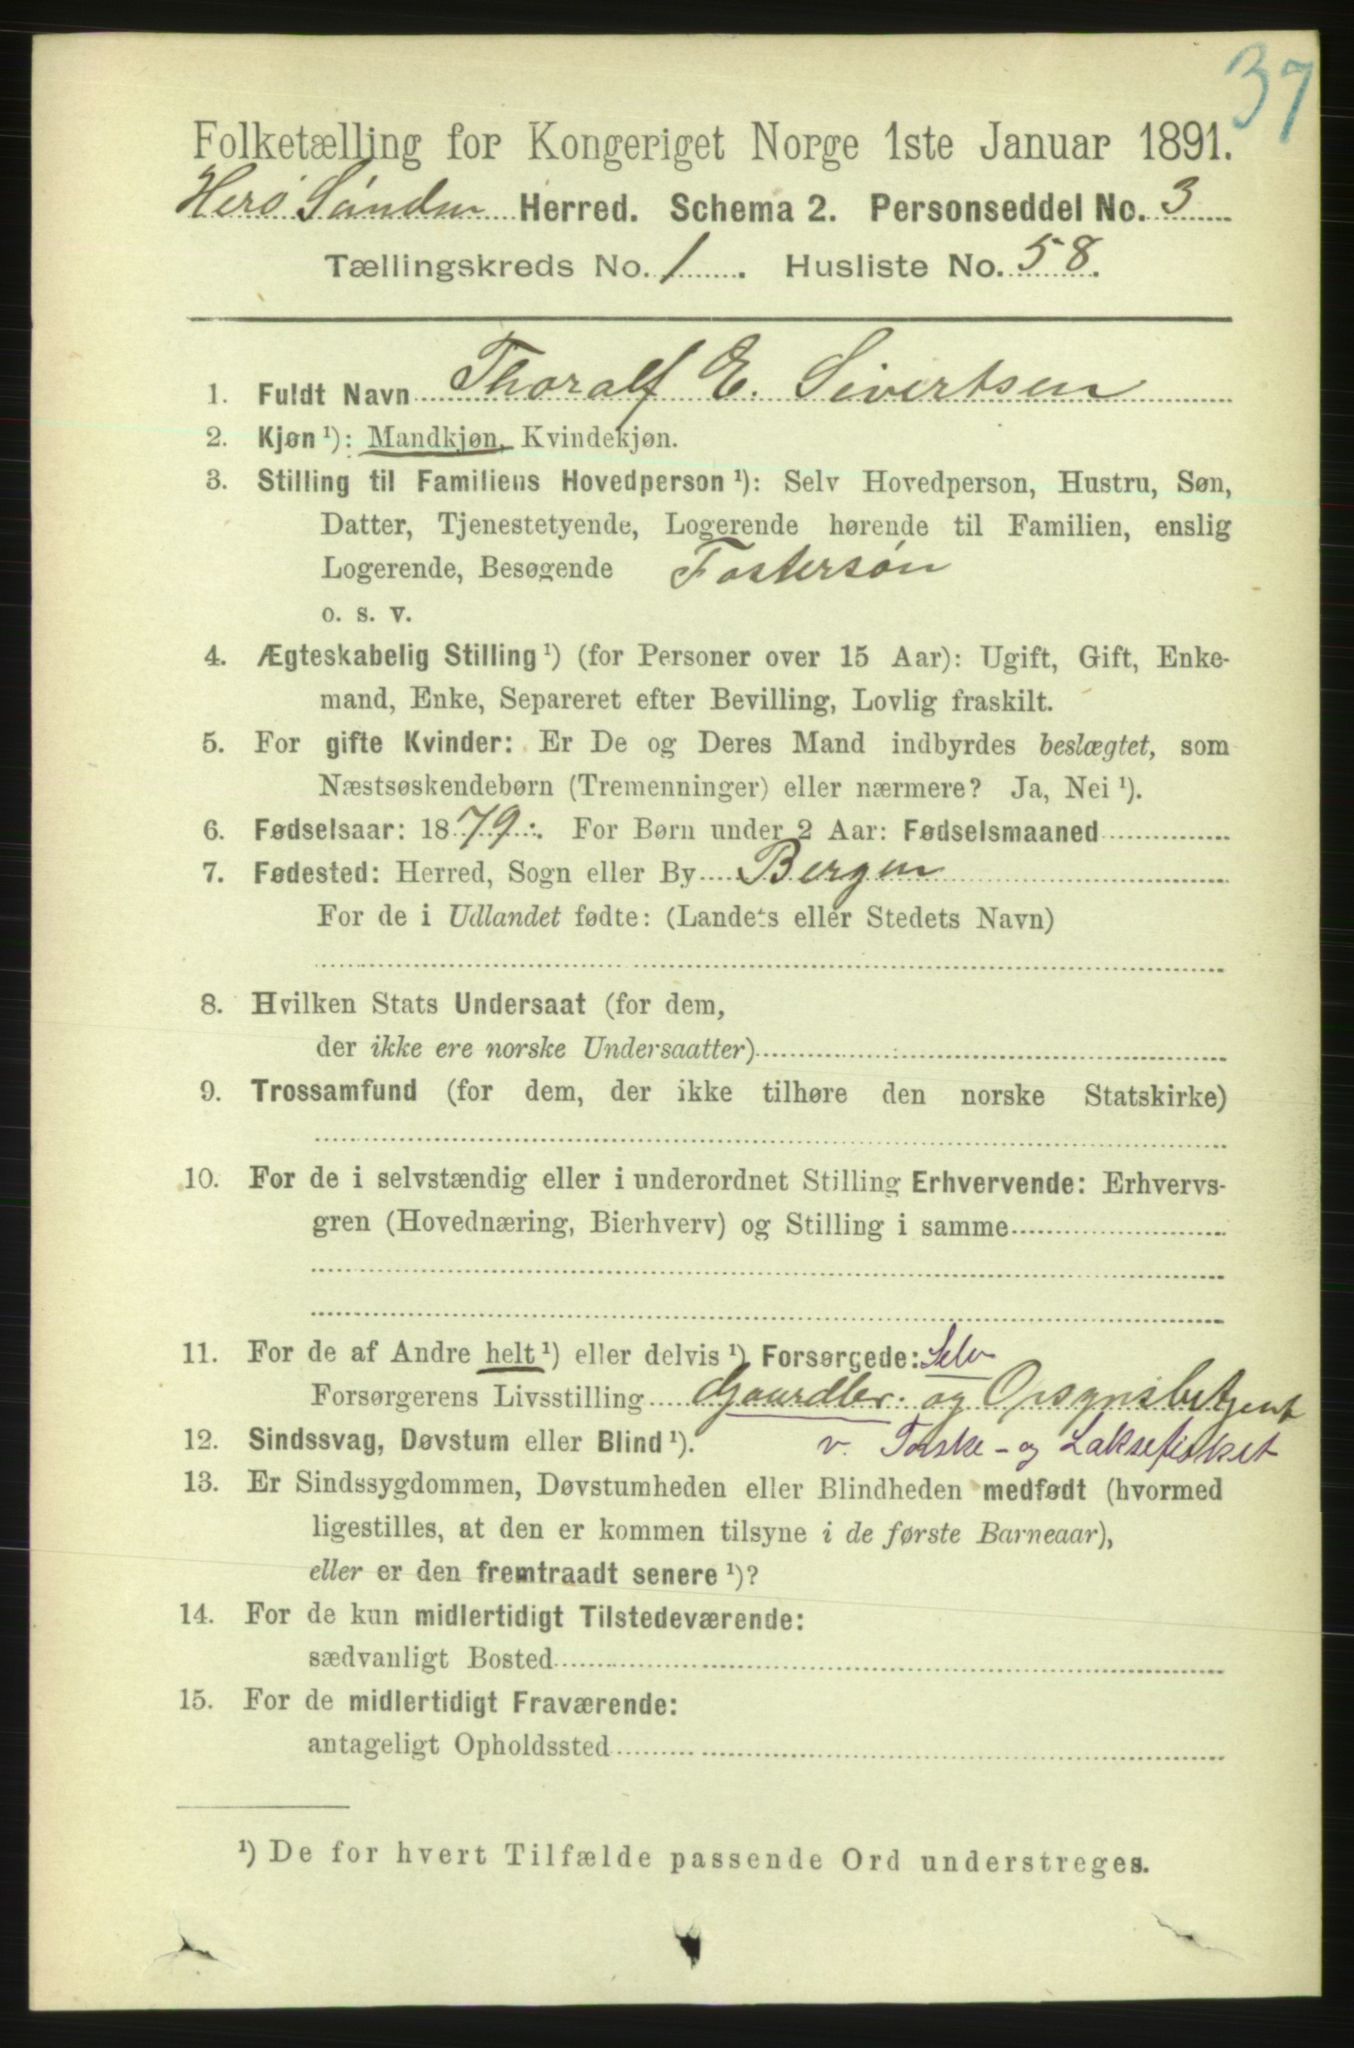 37
Folketælling for Kongeriget Norge 1ste Januar 1891.
Herø Søndm Herred. Schema 2. Personseddel No. 3
Tællingskreds No. 1. Husliste No. 58.
1. Fuldt Navn Thoralf E. Sivertsen
2. Kjøn ¹): Mandkjøn, Kvindekjøn.
3. Stilling til Familiens Hovedperson ¹): Selv Hovedperson, Hustru, Søn,
Datter, Tjenestetyende, Logerende hørende til Familien, enslig
Logerende, Besøgende Fostersøn
o. s. v.
4. Ægteskabelig Stilling ¹) (for Personer over 15 Aar): Ugift, Gift, Enke-
mand, Enke, Separeret efter Bevilling, Lovlig fraskilt.
5. For gifte Kvinder: Er De og Deres Mand indbyrdes beslægtet, som
Næstsøskendebørn (Tremenninger) eller nærmere? Ja, Nei ¹).
6. Fødselsaar: 1879. For Børn under 2 Aar: Fødselsmaaned
7. Fødested: Herred, Sogn eller By Bergen
For de i Udlandet fødte: (Landets eller Stedets Navn)
8. Hvilken Stats Undersaat (for dem,
der ikke ere norske Undersaatter)
9. Trossamfund (for dem, der ikke tilhøre den norske Statskirke)
10. For de i selvstændig eller i underordnet Stilling Erhvervende: Erhvervs-
gren (Hovednæring, Bierhverv) og Stilling i samme
11. For de af Andre helt ¹) eller delvis ¹) Forsørgede: Selv
Forsørgerens Livsstilling Gaardbr. og Opsynsbetjent
12. Sindssvag, Døvstum eller Blind ¹). v. Torske- og Laksefisket
13. Er Sindssygdommen, Døvstumheden eller Blindheden medfødt (hvormed
ligestilles, at den er kommen tilsyne i de første Barneaar),
eller er den fremtraadt senere ¹)?
14. For de kun midlertidigt Tilstedeværende:
sædvanligt Bosted
15. For de midlertidigt Fraværende:
antageligt Opholdssted
¹) De for hvert Tilfælde passende Ord understreges.